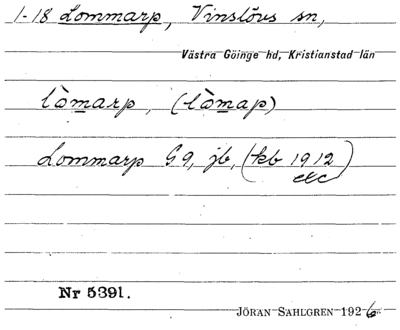 1-18 Lommarp, Vinslövs sn,
Västra Göinge hd, Kristianstad län
lòmarp, (lòmap)
Lommarp G9, jb, (kb 1912
etc)
Nr 5391.
JÖRAN SAHLGREN 1926